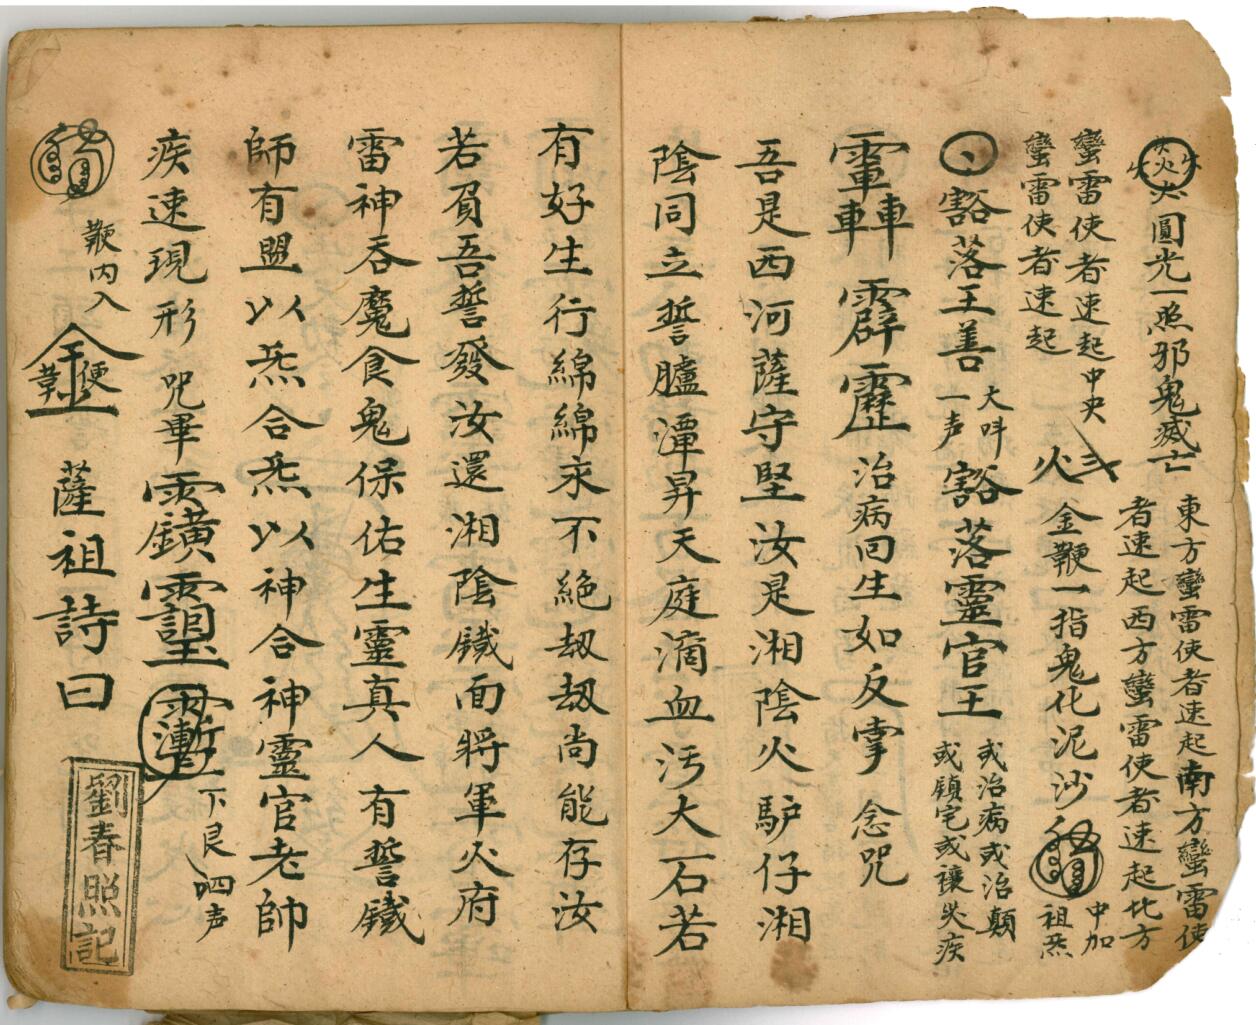 火圓光一照邪鬼滅亡
東方蠻雷使者速起南方蠻雷使
者速起西方蠻雷使者速起北方
蠻雷使者速起中央
蠻雷使者速起
火
金鞭一指鬼化泥沙
中加
祖炁
豁落王善
大呌
一声
豁落靈官王
或治病或治顛
或鎮宅或禳災疾
霹靂
治病回生如反掌 念咒
吾是西河薩守堅汝是湘陰火馿仔湘
陰同立誓臚潭昇天庭滴血污大石若
有好生行綿綿永不絶刼刼尚能存汝
若負吾誓發汝還湘陰鐵面將軍火府
雷神吞魔食鬼保佑生靈真人有誓鐵
師有盟以炁合炁以神合神靈官老帥
疾速現形 咒畢
下艮
四声
鞭内入
薩祖詩曰
劉春照記